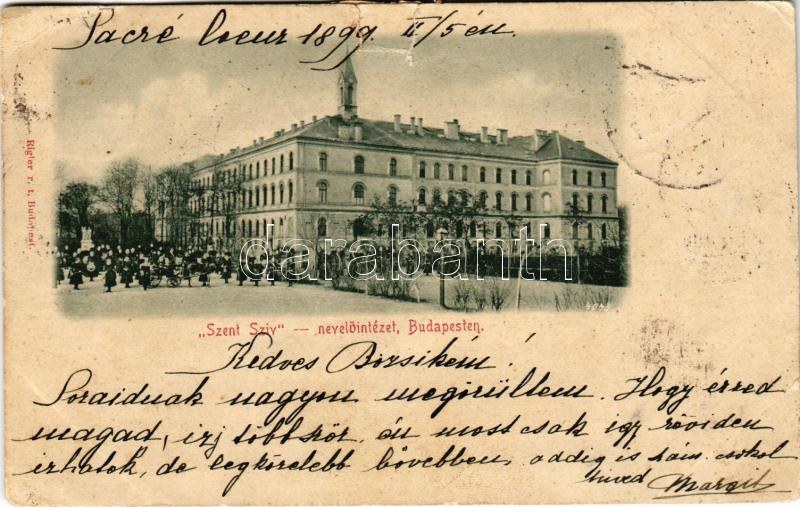 Sacré Coeur 1899 II/5én
Rigler r. t. Budapest.
darabanth
„Szent Sziv“ — nevelöintézet, Budapesten.
Kedves Bözsikém!
Soraidnak nagyon megörültem. Hogy érzed
magad, irj többször, én most csak igy röviden
irhatok, de legközelebb bővebben, addig is csókol
hived Margit